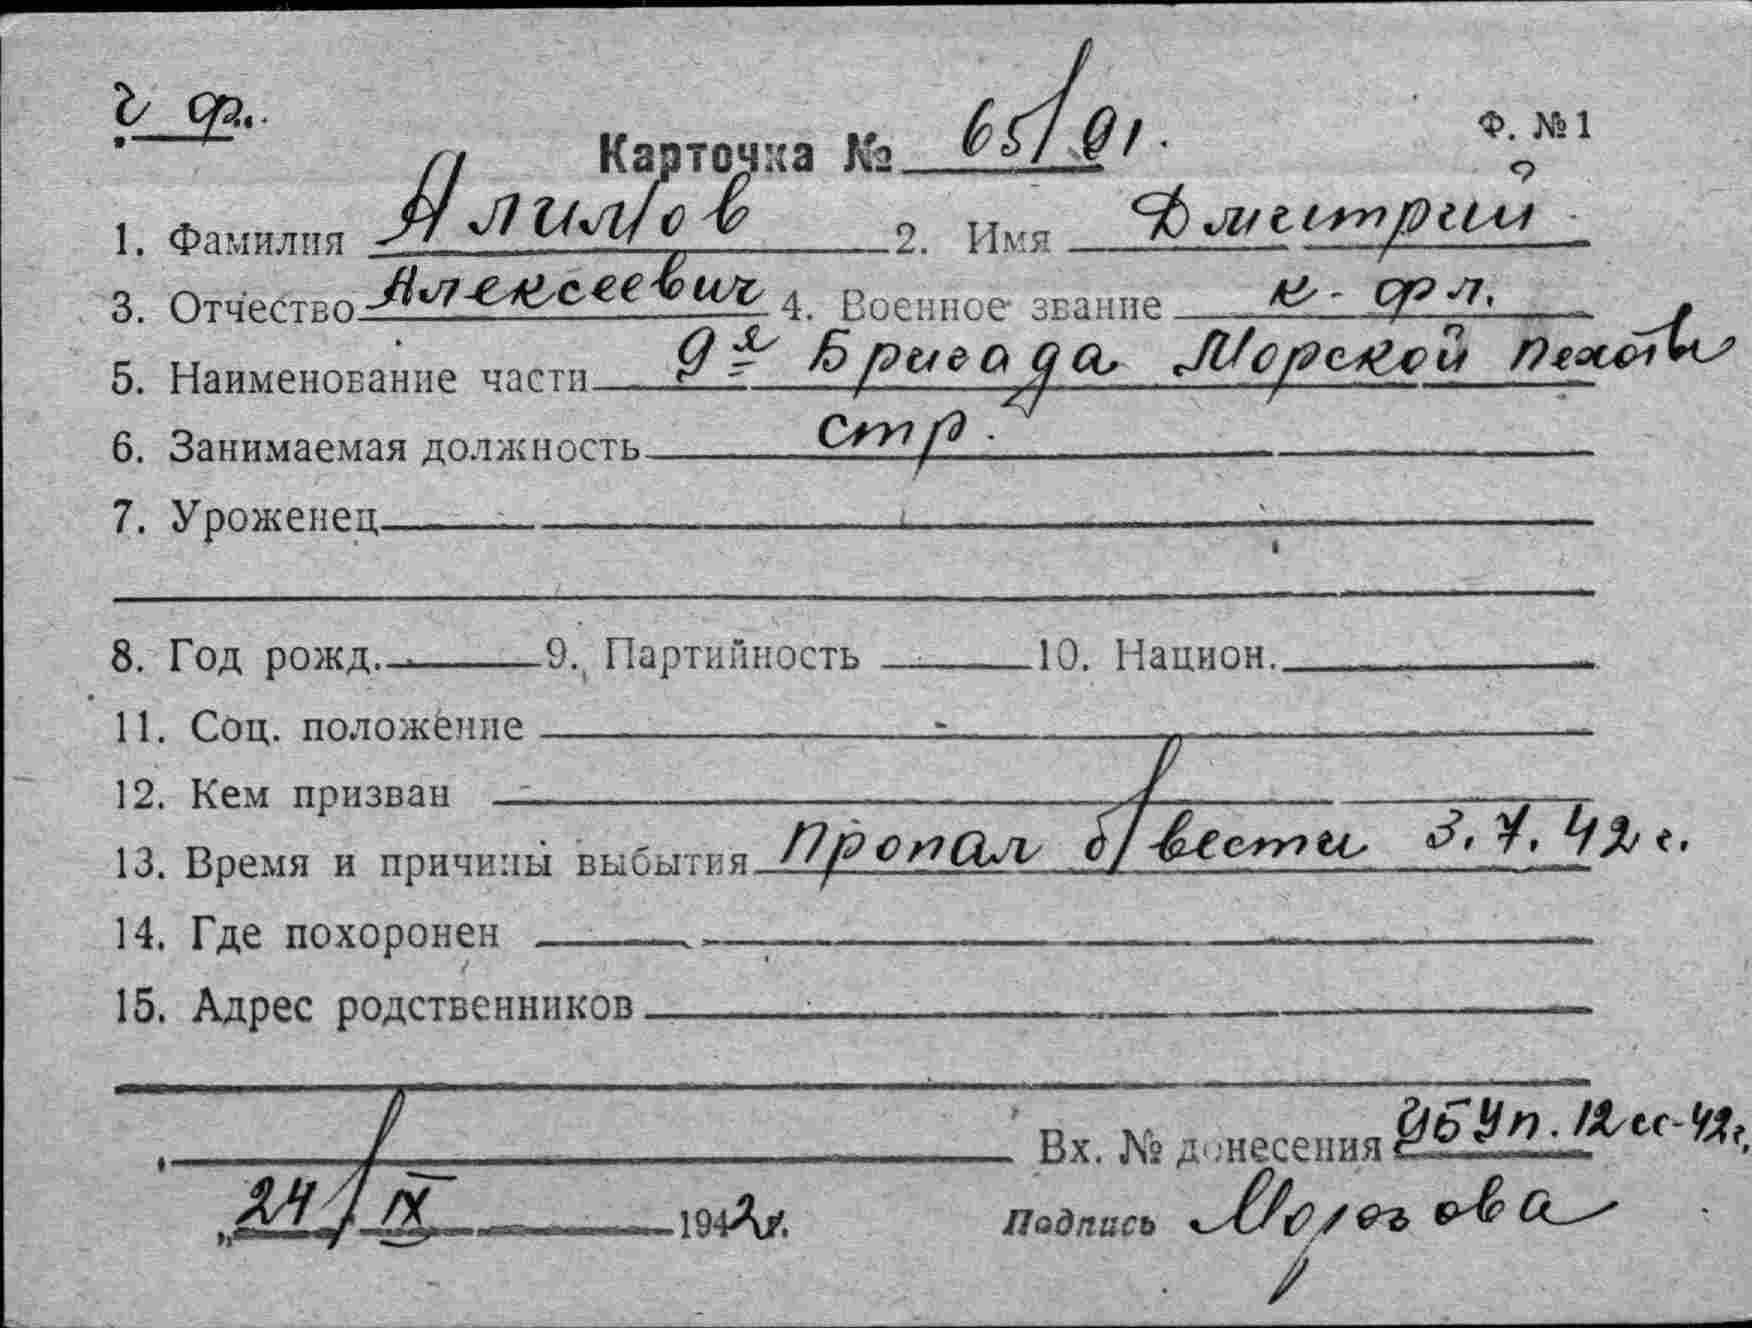 ч ф.
Ф. №1
Карточка № 65/91.
1. Фамилия Алимов 2. Имя Дмитрий
3. Отчество Алексеевич 4. Военное звание к-фл.
5. Наименование части 9я Бригада Морской пехоты
6. Занимаемая должность стр.
7. Уроженец
8. Год рожд. 9. Партийность 10. Национ.
11. Соц. положение
12. Кем призван
13. Время и причины выбытия Пропал б/вести 3.7.42 г.
14. Где похоронен
15. Адрес родственников
Вх. № донесения УБУп. 12сс-42г.
„24/IX 1942г. Подпись